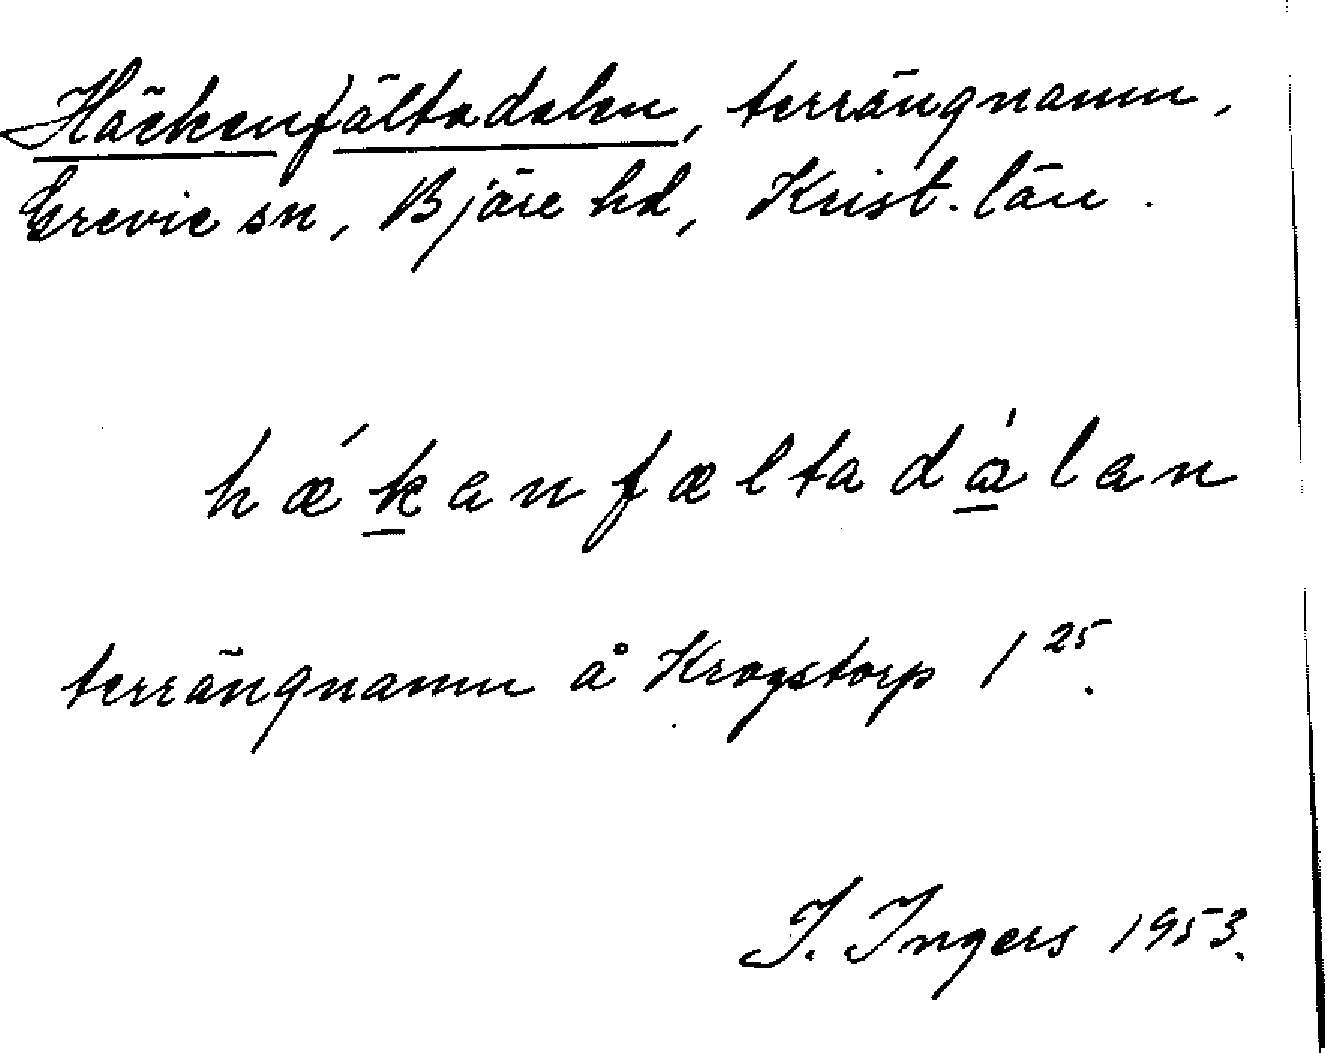 Häckenfältadalen, terrängnamn,
Grevie sn, Bjäre hd, Krist. län.
hǽkanfæltadálan
terrängnamn å Krogstorp 1²⁵.
I. Ingers 1953.